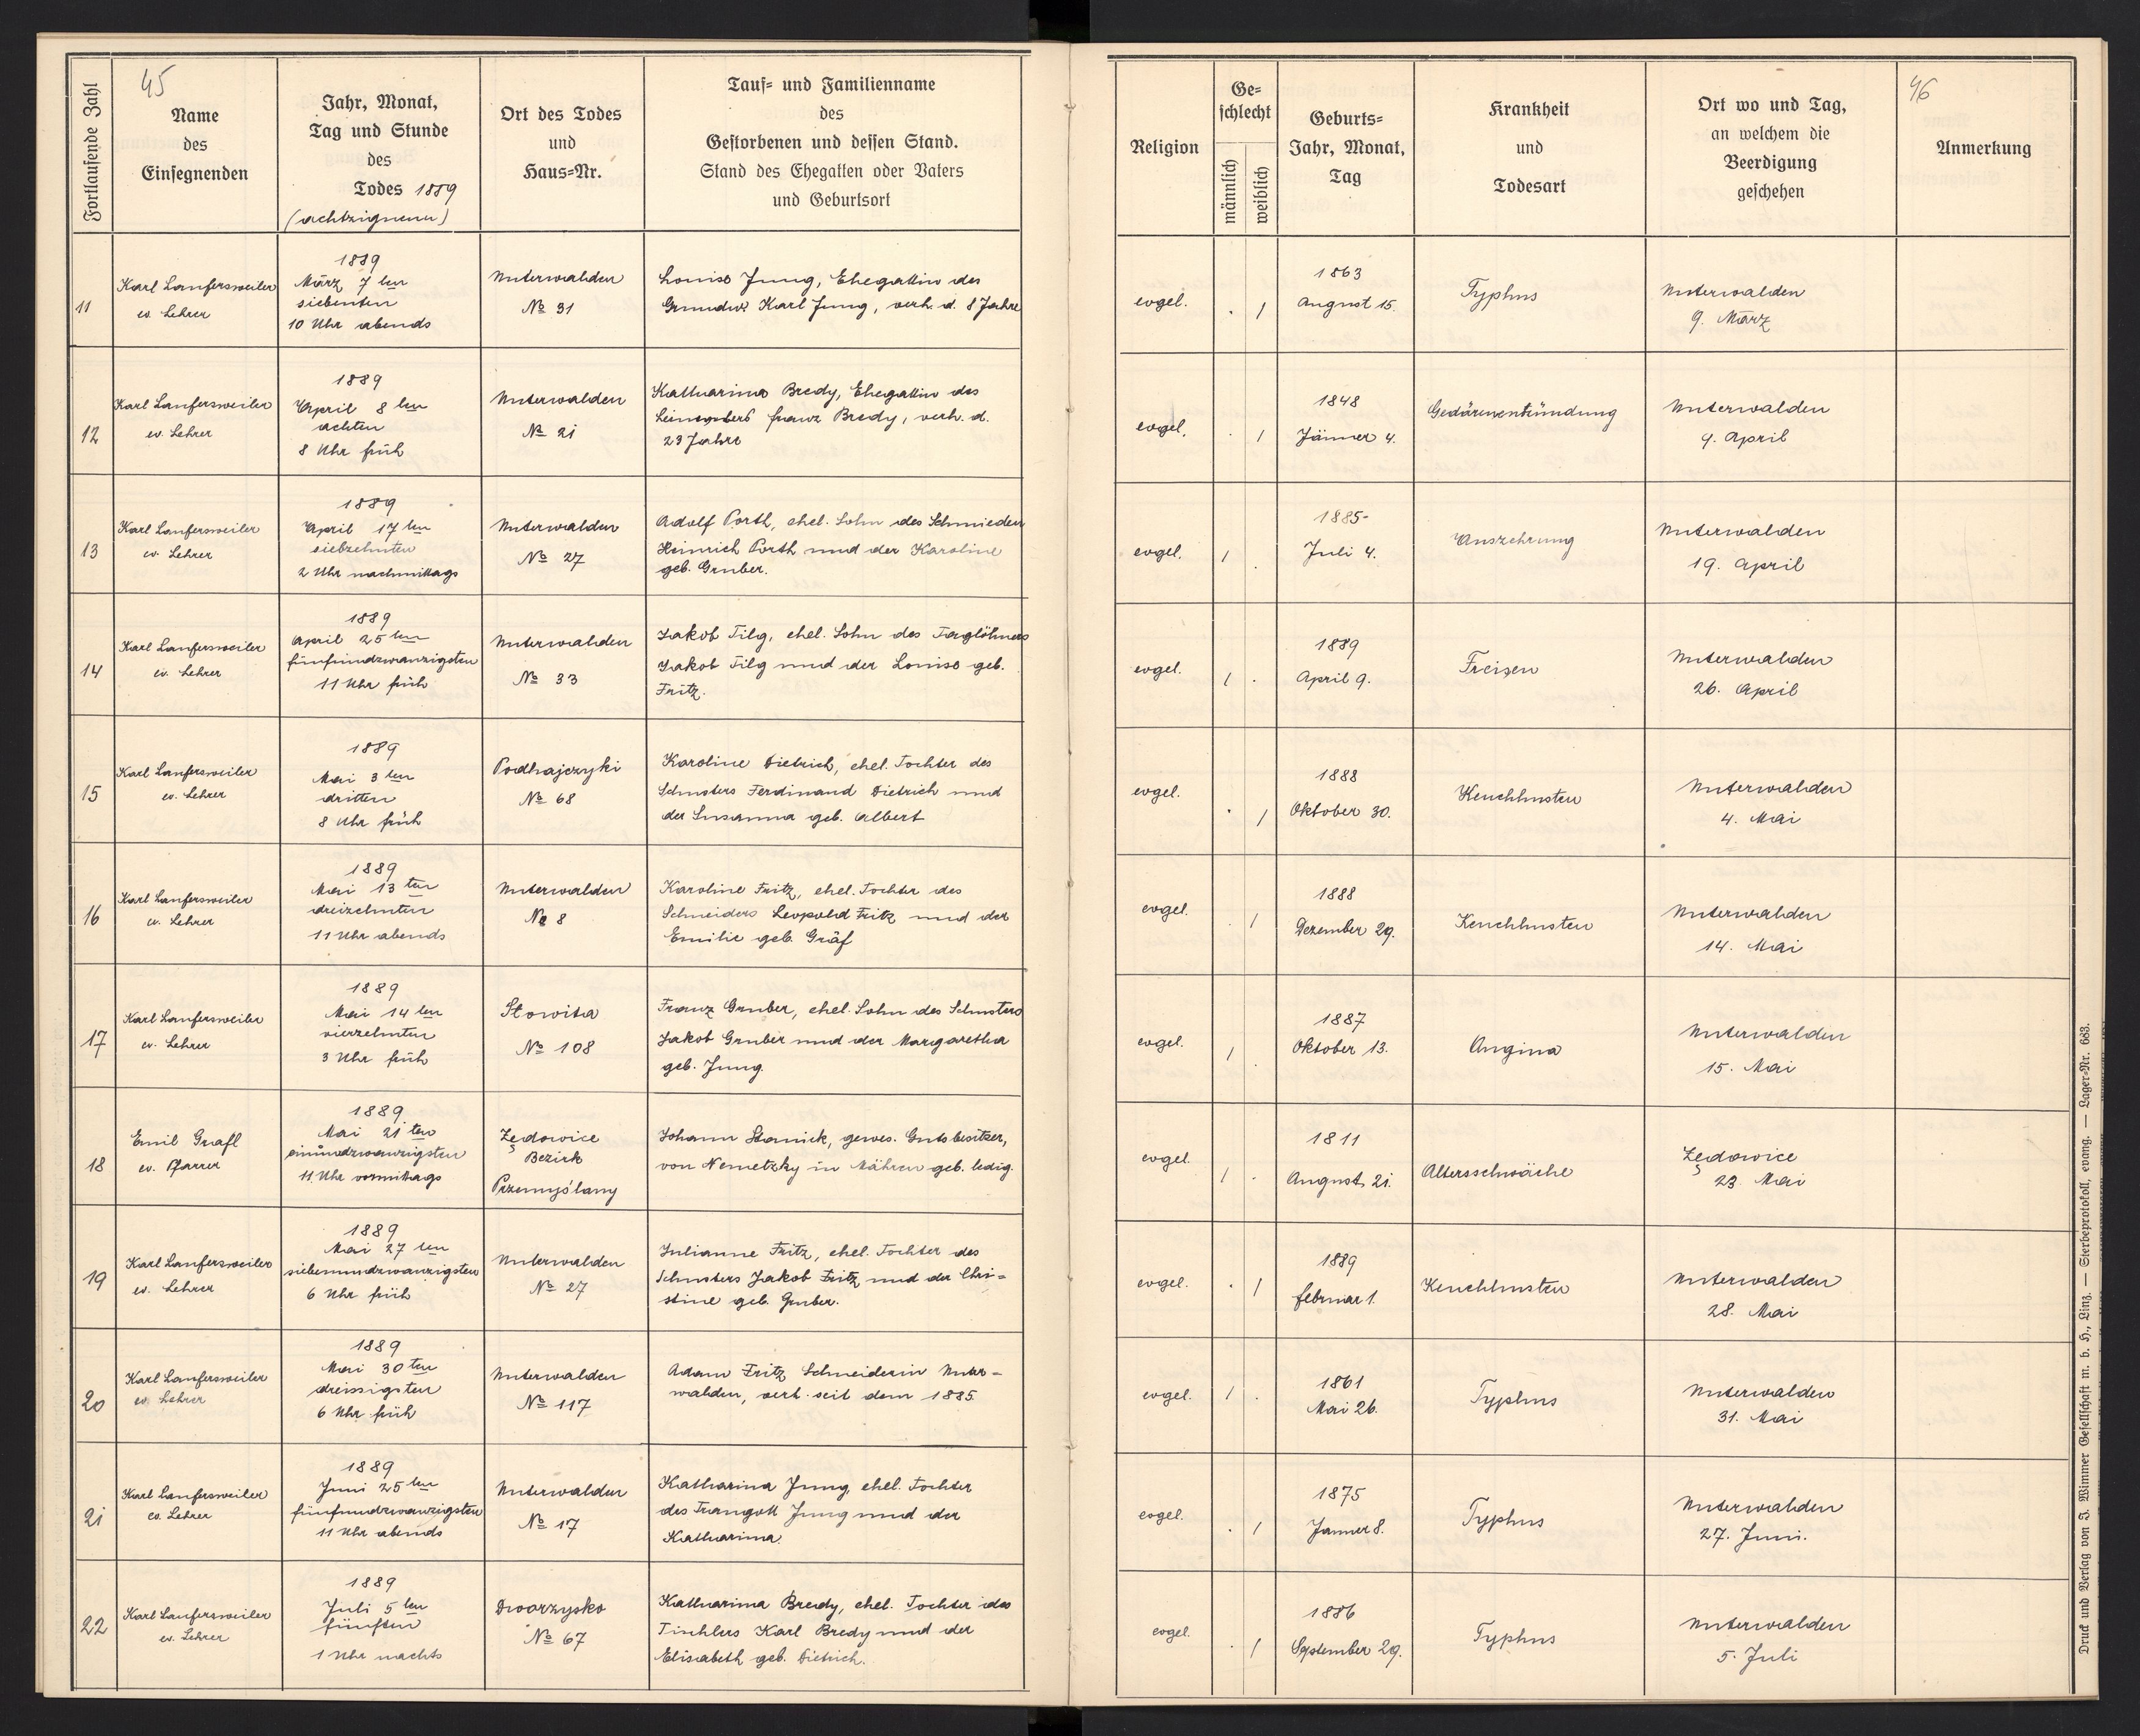 45
Fortlaufende Zahl
Name
des
Einsegnenden
Jahr, Monat,
Tag und Stunde
des
Todes 1889
(achtzigneun)
Ort des Todes
und
Haus=Nr.
Tauf= und Familienname
des
Gestorbenen und dessen Stand.
Stand des Ehegatten oder Vaters
und Geburtsort
Religion
Ge=
schlecht
männlich
weiblich
Geburts=
Jahr, Monat,
Tag
Krankheit
und
Todesart
Ort wo und Tag,
an welchem die
Beerdigung
geschehen
46
Anmerkung
11
Karl Laufersweiler
ev. Lehrer
1889
März 7 ten
siebenten
10 Uhr abends
Unterwalden
No 31
Louise Jung, Ehegattin des
Grundw. Karl Jung, verh. d. 8 Jahre
evgel.
. 1
1863
August 15.
Typhus
Unterwalden
9. März
12
Karl Laufersweiler
ev. Lehrer
1889
April 8 ten
achten
8 Uhr früh
Unterwalden
No 21
Katharina Bredy, Ehegattin des
Leinwebers Franz Bredy, verh. d.
23 Jahre
evgel.
. 1
1848
Jänner 4.
Gedärmentzündung
Unterwalden
9. April
13
Karl Laufersweiler
ev. Lehrer
1889
April 17 ten
siebzehnten
2 Uhr nachmittags
Unterwalden
No 27
Adolf Porth, ehel. Sohn des Schmieden
Heinrich Porth und der Karoline
geb. Gruber.
evgel.
1 .
1885-
Juli 4.
Auszehrung
Unterwalden
19. April
14
Karl Laufersweiler
ev. Lehrer
1889
April 25 ten
fünfundzwanzigsten
11 Uhr früh
Unterwalden
No 33
Jakob Filg, ehel. Sohn des Taglöhners
Jakob Filg und der Louise geb.
Fritz.
evgel.
1 .
1889
April 9.
Freisen
Unterwalden
26. April
15
Karl Laufersweiler
ev. Lehrer
1889
Mai 3 ten
dritten
8 Uhr früh
Podhajczyki
No 68
Karoline Dietrich, ehel. Tochter des
Schusters Ferdinand Dietrich und
der Susanna geb. Albert
evgel.
. 1
1888
Oktober 30.
Keuchhusten
Unterwalden
4. Mai
16
Karl Laufersweiler
ev. Lehrer
1889
Mai 13 ten
dreizehnten
11 Uhr abends
Unterwalden
No 8
Karoline Fritz, ehel. Tochter des
Schneiders Leopold Fritz und der
Emilie geb. Gräf
evgel.
. 1
1888
Dezember 29.
Keuchhusten
Unterwalden
14. Mai
17
Karl Laufersweiler
ev. Lehrer
1889
Mai 14 ten
vierzehnten
3 Uhr früh
Slowita
No 108
Franz Gruber, ehel. Sohn des Schusters
Jakob Gruber und der Margaretha
geb. Jung.
evgel.
1 .
1887
Oktober 13.
Angina
Unterwalden
15. Mai
18
Emil Grafl
ev. Pfarrer
1889
Mai 21 ten
einundzwanzigsten
11 Uhr vormittags
Zędowice
Bezirk
Przemyślany
Johann Stanick, gewes. Gutsbesitzer,
von Nemetzky in Mähren geb. ledig.
evgel.
1 .
1811
August 21.
Altersschwäche
Zędowice
23. Mai
19
Karl Laufersweiler
ev. Lehrer
1889
Mai 27 ten
siebenundzwanzigsten
6 Uhr früh
Unterwalden
No 27
Julianne Fritz, ehel. Tochter des
Schusters Jakob Fritz und der Chri=
stine geb. Gruber.
evgel.
. 1
1889
Februar 1.
Keuchhusten
Unterwalden
28. Mai
20
Karl Laufersweiler
ev. Lehrer
1889
Mai 30 ten
dreissigsten
6 Uhr früh
Unterwalden
No 117
Adam Fritz Schneider in Unter=
walden, verh. seit dem 1885.
evgel.
1 .
1861
Mai 26.
Typhus
Unterwalden
31. Mai
21
Karl Laufersweiler
ev. Lehrer
1889
Juni 25 ten
fünfundzwanzigsten
11 Uhr abends
Unterwalden
No 17
Katharina Jung, ehel. Tochter
des Traugott Jung und der
Katharina.
evgel.
. 1
1875
Jänner 8.
Typhus
Unterwalden
27. Juni.
22
Karl Laufersweiler
ev. Lehrer
1889
Juli 5 ten
fünften
1 Uhr nachts
Dworzysko
No 67
Katharina Bredy, ehel. Tochter des
Tischlers Karl Bredy und der
Elisabeth geb. Dietrich.
evgel.
. 1
1886
September 29.
Typhus
Unterwalden
5. Juli
Druck und Verlag von J. Wimmer Gesellschaft m. b. H., Linz. — Sterbeprotokoll, evang. — Lager=Nr. 683.